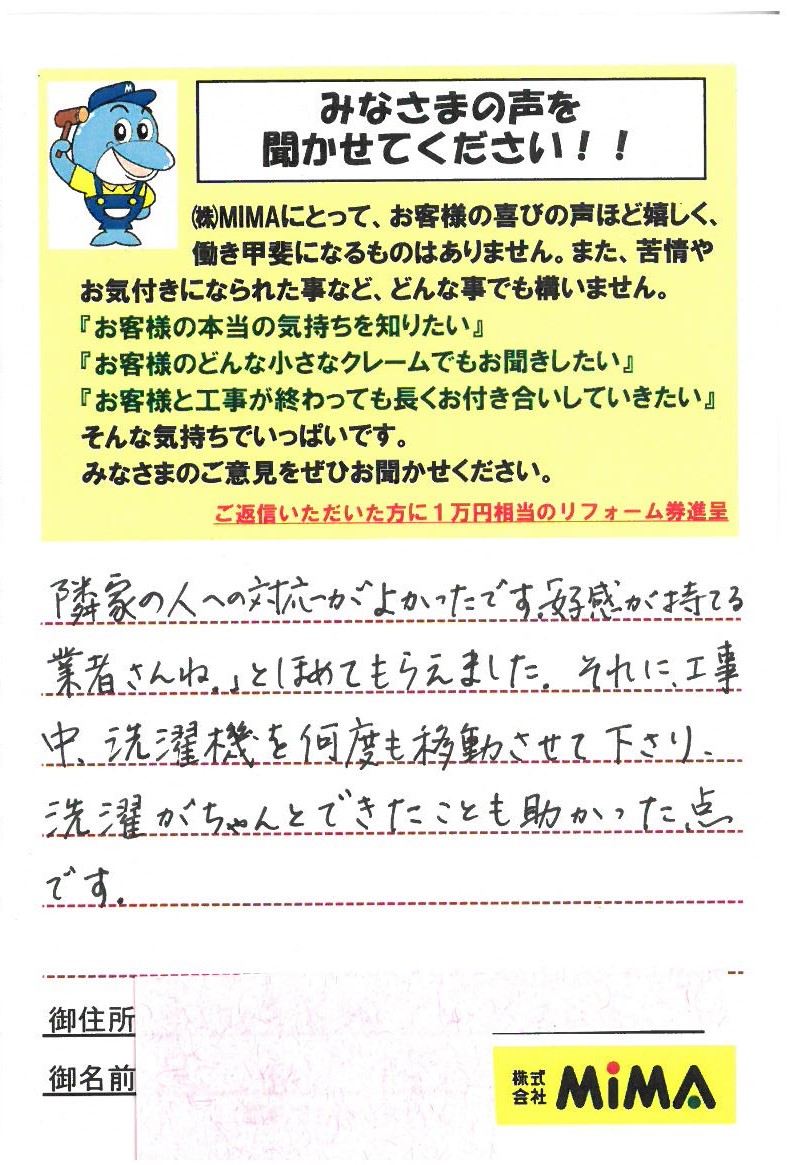 M
みなさまの声を
聞かせてください！！
㈱MIMAにとって、お客様の喜びの声ほど嬉しく、
働き甲斐になるものはありません。また、苦情や
お気付きになられた事など、どんな事でも構いません。
『お客様の本当の気持ちを知りたい』
『お客様のどんな小さなクレームでもお聞きしたい』
『お客様と工事が終わっても長くお付き合いしていきたい』
そんな気持ちでいっぱいです。
みなさまのご意見をぜひお聞かせください。
ご返信いただいた方に１万円相当のリフォーム券進呈
隣家の人への対応がよかったです。「好感が持てる
業者さんね。」とほめてもらえました。それに、工事
中、洗濯機を何度も移動させて下さり、
洗濯がちゃんとできたことも助かった点
です。
御住所
御名前
株式会社 MiMA